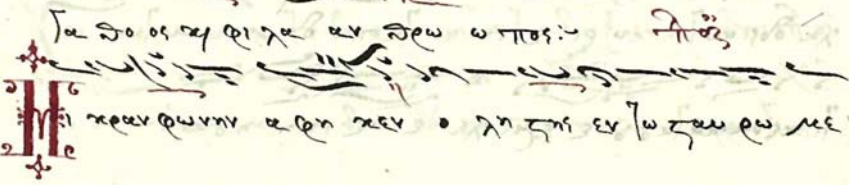 γα θο ος ϗ φι λα αν θρω ω πος:~
Μι κραν φωνην α φη κεν ο λη στης εν τω σταυ ρω με